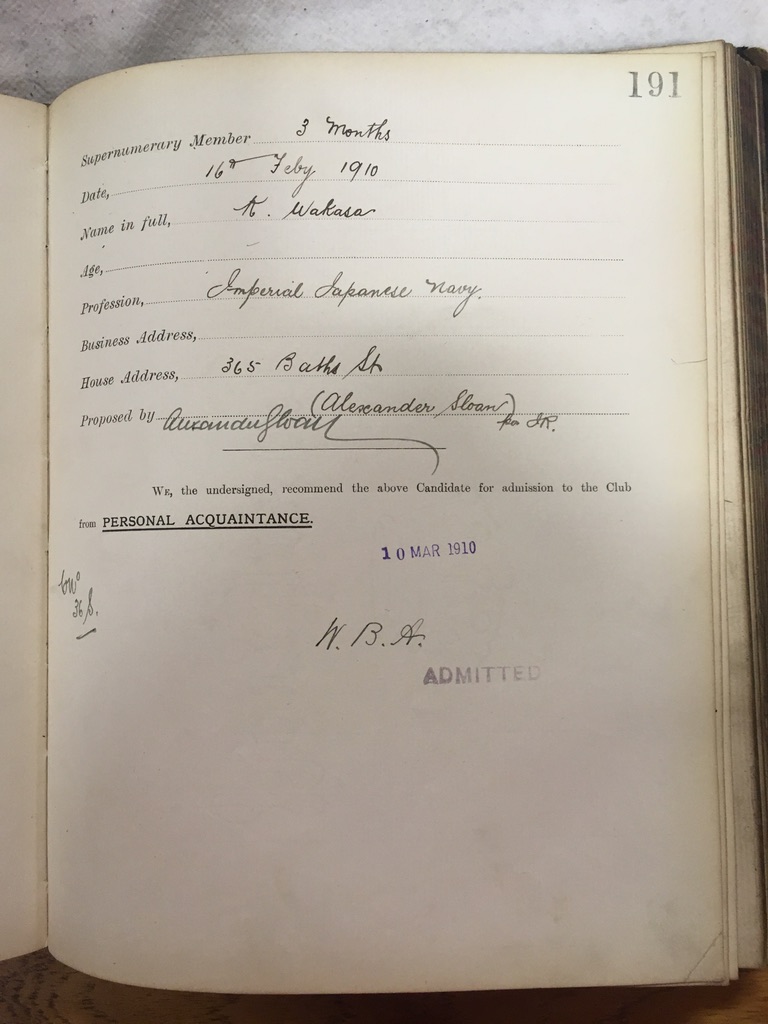 191
Supernumerary Member 3 Months
Date, 16th Feby 1910
Name in full, K. Wakasa
Age,
Profession, Imperial Japanese Navy.
Business Address,
House Address, 365 Baths St
Proposed by Alexander Sloan (Alexander Sloan)
WE, the undersigned, recommend the above Candidate for admission to the Club
from PERSONAL ACQUAINTANCE.
10 MAR 1910
36 S.
W. B. A.
ADMITTED